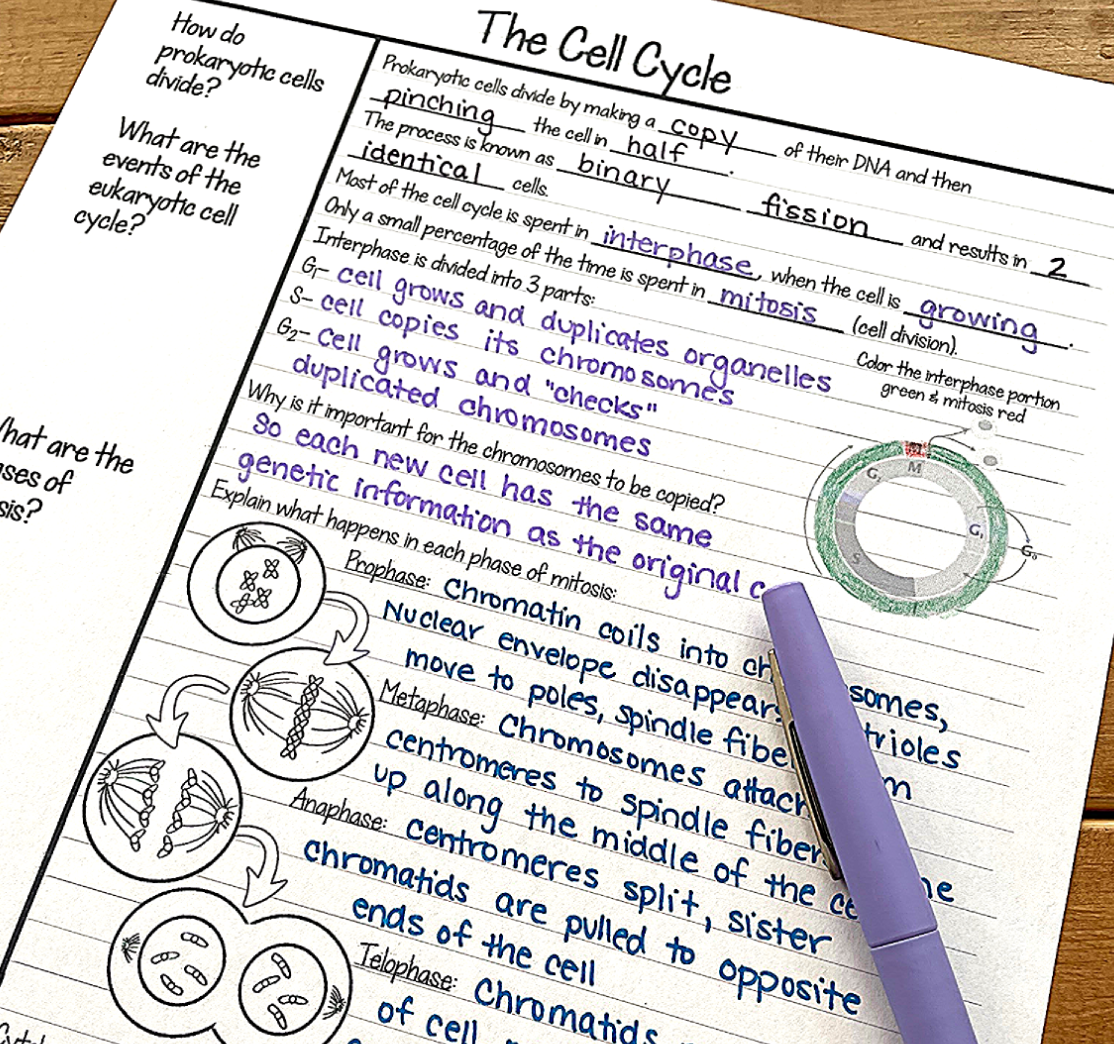 The Cell Cycle
How do
prokaryotic cells
divide?
What are the
events of the
eukaryotic cell
cycle?
are the
of
Prokaryotic cells divide by making a copy of their DNA and then
pinching the cell in half.
The process is known as binary fission and results in 2
identical cells.
Most of the cell cycle is spent in interphase, when the cell is growing.
Only a small percentage of the time is spent in mitosis (cell division).
Interphase is divided into 3 parts:
G1- cell grows and duplicates organelles
S- cell copies its chromosomes
G2- cell grows and "checks"
duplicated chromosomes
Color the interphase portion
green & mitosis red
G2
M
G1
G0
S
Why is it important for the chromosomes to be copied?
So each new cell has the same
genetic information as the original
Explain what happens in each phase of mitosis:
Prophase: Chromatin coils into
Nuclear envelope disappears
move to poles, spindle
Metaphase: Chromosomes attach
centromeres to spindle
up along the middle of the
Anaphase: centromeres split, sister
chromatids are pulled to opposite
ends of the cell
Telophase: Chromatids
of cell